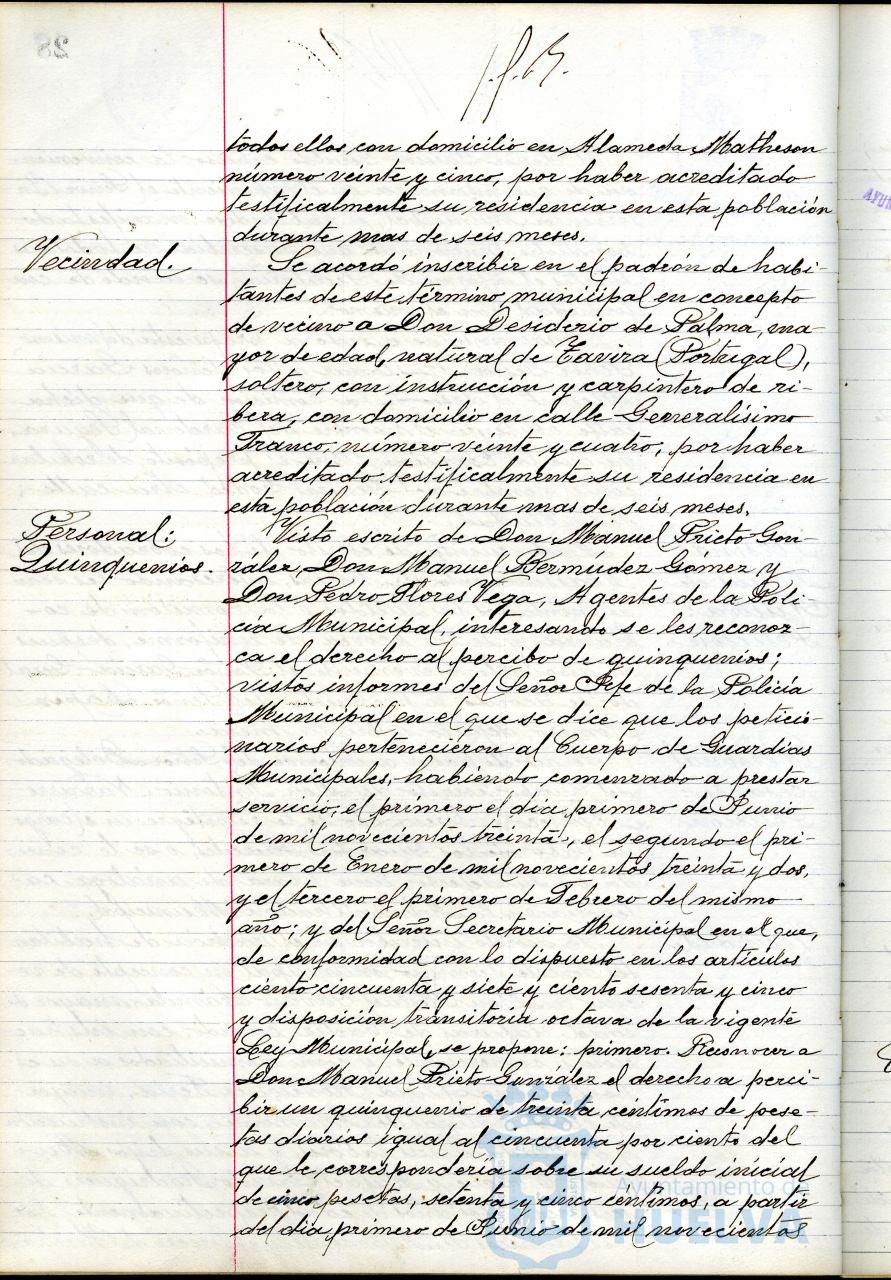 todos ellos, con domicilio en Alameda Matheson
número veinte y cinco, por haber acreditado
testificalmente su residencia en esta población
durante mas de seis meses.
Vecindad.
Se acordó inscribir en el padrón de habi-
tantes de este término municipal en concepto
de vecino a Don Desiderio de Palma, ma-
yor de edad, natural de Tavira (Portugal),
soltero, con instrucción y carpintero de ri-
bera, con domicilio en calle Generalísimo
Franco, número veinte y cuatro, por haber
acreditado testificalmente su residencia en
esta población durante mas de seis meses.
Personal:
Quinquenios.
Visto escrito de Don Manuel Prieto Gon-
zález, Don Manuel Bermudez Gómez y
Don Pedro Flores Vega, Agentes de la Poli-
cía Municipal, interesando se les reconoz-
ca el derecho al percibo de quinquenios;
vistos informes del Señor Jefe de la Policía
Municipal en el que se dice que los peticio-
narios pertenecieron al Cuerpo de Guardias
Municipales, habiendo comenzado a prestar
servicio; el primero el día primero de Junio
de mil novecientos treinta, el segundo el pri-
mero de Enero de mil novecientos treinta y dos,
y el tercero el primero de Febrero del mismo
año; y del Señor Secretario Municipal en el que,
de conformidad con lo dispuesto en los artículos
ciento cincuenta y siete y ciento sesenta y cinco
y disposición transitoria octava de la vigente
Ley Municipal, se propone: primero. Reconocer a
Don Manuel Prieto González el derecho a perci-
bir un quinquenio de treinta céntimos de pese-
tas diarios igual al cincuenta por ciento del
que le correspondería sobre su sueldo inicial
de cinco pesetas, setenta y cinco céntimos, a partir
del día primero de Junio de mil novecientos
Ayuntamiento de
HUELVA